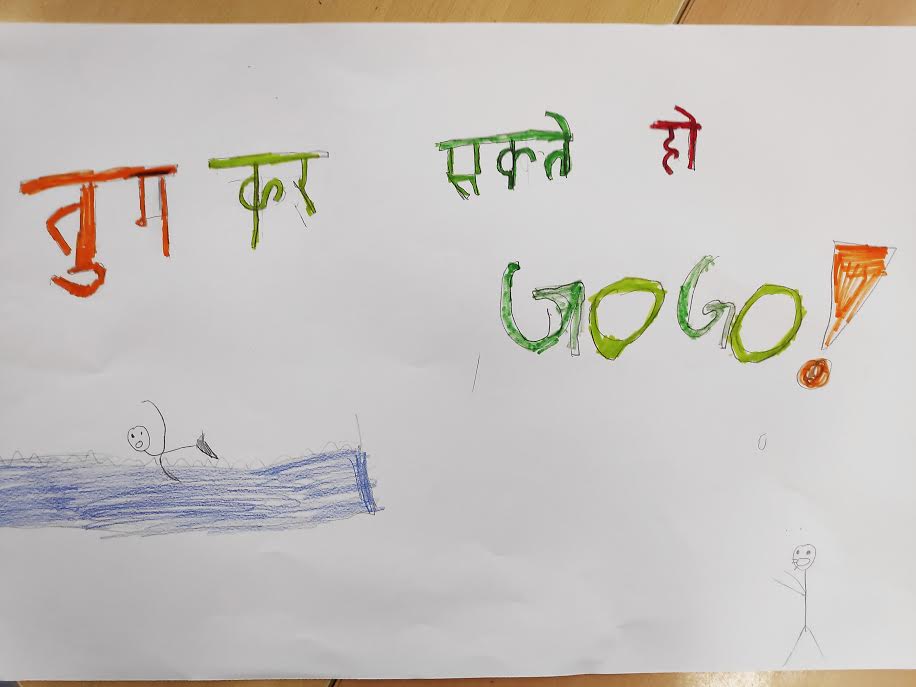 तुम कर सकते हो
GO GO!